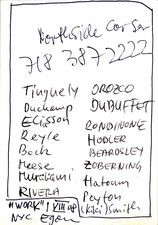 Northside Car Ser
718 387 2222
Tinguely
Duchamp
Eliasson
Reyle
Beck
Meese
Murakami
RIVERA
OROZCO
DUBUFFET
RONDINONE
HODLER
BEARDSLEY
ZOBERNING
Hatoum
Peyton
(Kiki) Smith
"WORK" VIII 08
NYC Egon